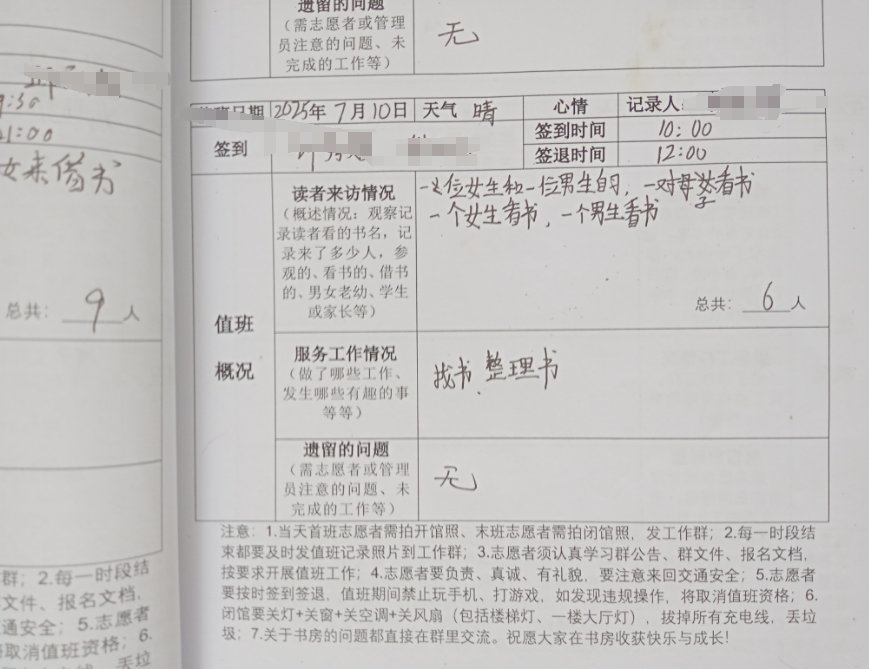 遗留的问题
（需志愿者或管理
员注意的问题、未
完成的工作等）
无
9:30
21:00
女来借书
总共：9人
日期 2025年7月10日 天气 晴 心情 记录人：
签到 签到时间 10：00
签退时间 12:00
读者来访情况
（概述情况：观察记
录读者看的书名，记
录来了多少人，参
观的、看书的、借书
的、男女老幼、学生
或家长等）
一位女生和一位男生的，一对母子看书
一个女生看书，一个男生看书
总共：6人
值班
概况
服务工作情况
（做了哪些工作、
发生哪些有趣的事
等等）
找书 整理书
遗留的问题
（需志愿者或管理
员注意的问题、未
完成的工作等）
无
注意：1.当天首班志愿者需拍开馆照、末班志愿者需拍闭馆照，发工作群；2.每一时段结
束都要及时发值班记录照片到工作群；3.志愿者须认真学习群公告、群文件、报名文档，
按要求开展值班工作；4.志愿者要负责、真诚、有礼貌，要注意来回交通安全；5.志愿者
要按时签到签退，值班期间禁止玩手机、打游戏，如发现违规操作，将取消值班资格；6.
闭馆要关灯+关窗+关空调+关风扇（包括楼梯灯、一楼大厅灯），拔掉所有充电线，丢垃
圾；7.关于书房的问题都直接在群里交流。祝愿大家在书房收获快乐与成长！
群；2.每一时段结
文件、报名文档，
通安全；5.志愿者
将取消值班资格；6.
丢垃